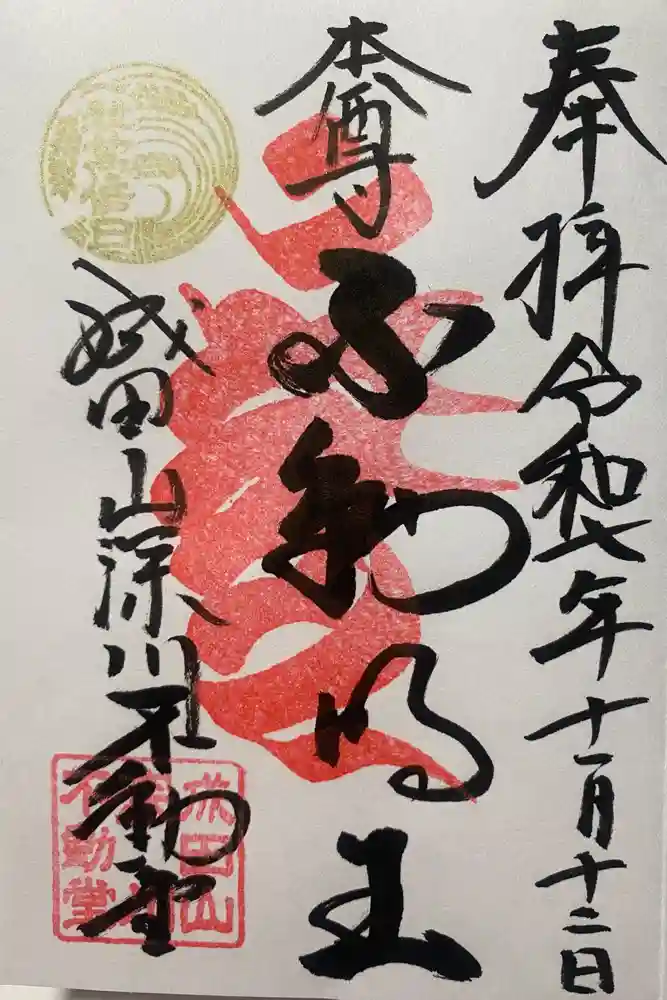 奉拝令和七年十一月十二日
本尊
不動明王
成田山深川不動堂
成田山
不動堂